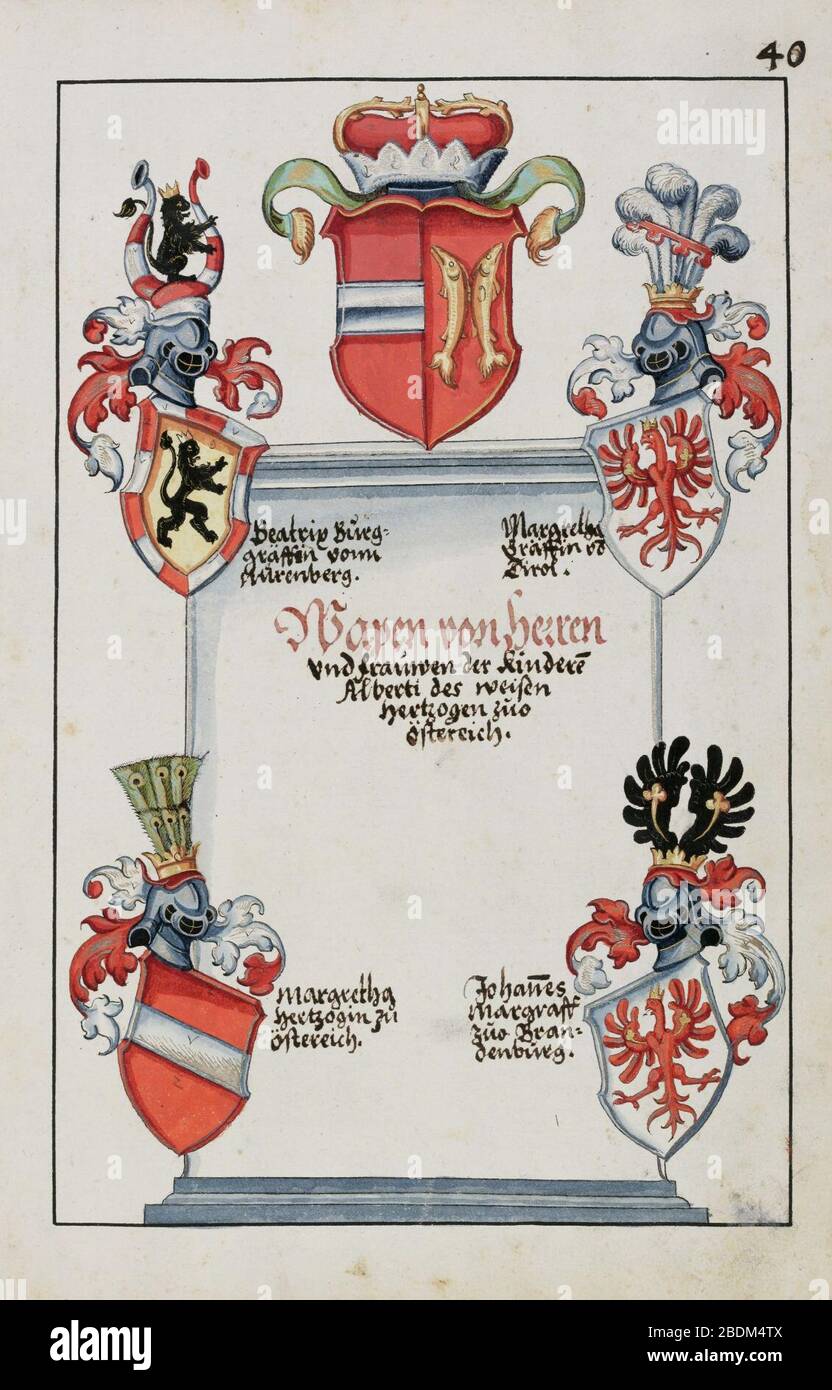 40
Beatrix Burg-
gräffin vonn
Nürenberg.
Margretha
Gräffin vō
Tirol.
Wapen von Herren
vnd frauwen der Kinderē
Alberti des weisen
Hertzogen zuo
östereich.
Margretha
Hertzogin zu
östereich.
Johañes
Margraff
zuo Bran-
denburg.
alamy
Image ID: 2BDM4TX
www.alamy.com